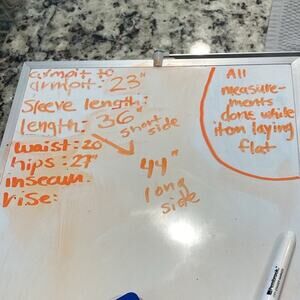 armpit to
armpit: 23"
Sleeve length:
length: 36"
short
side
waist: 20
hips: 27"
inseam:
rise:
44"
long
side
All
measure-
ments
done while
item laying
flat